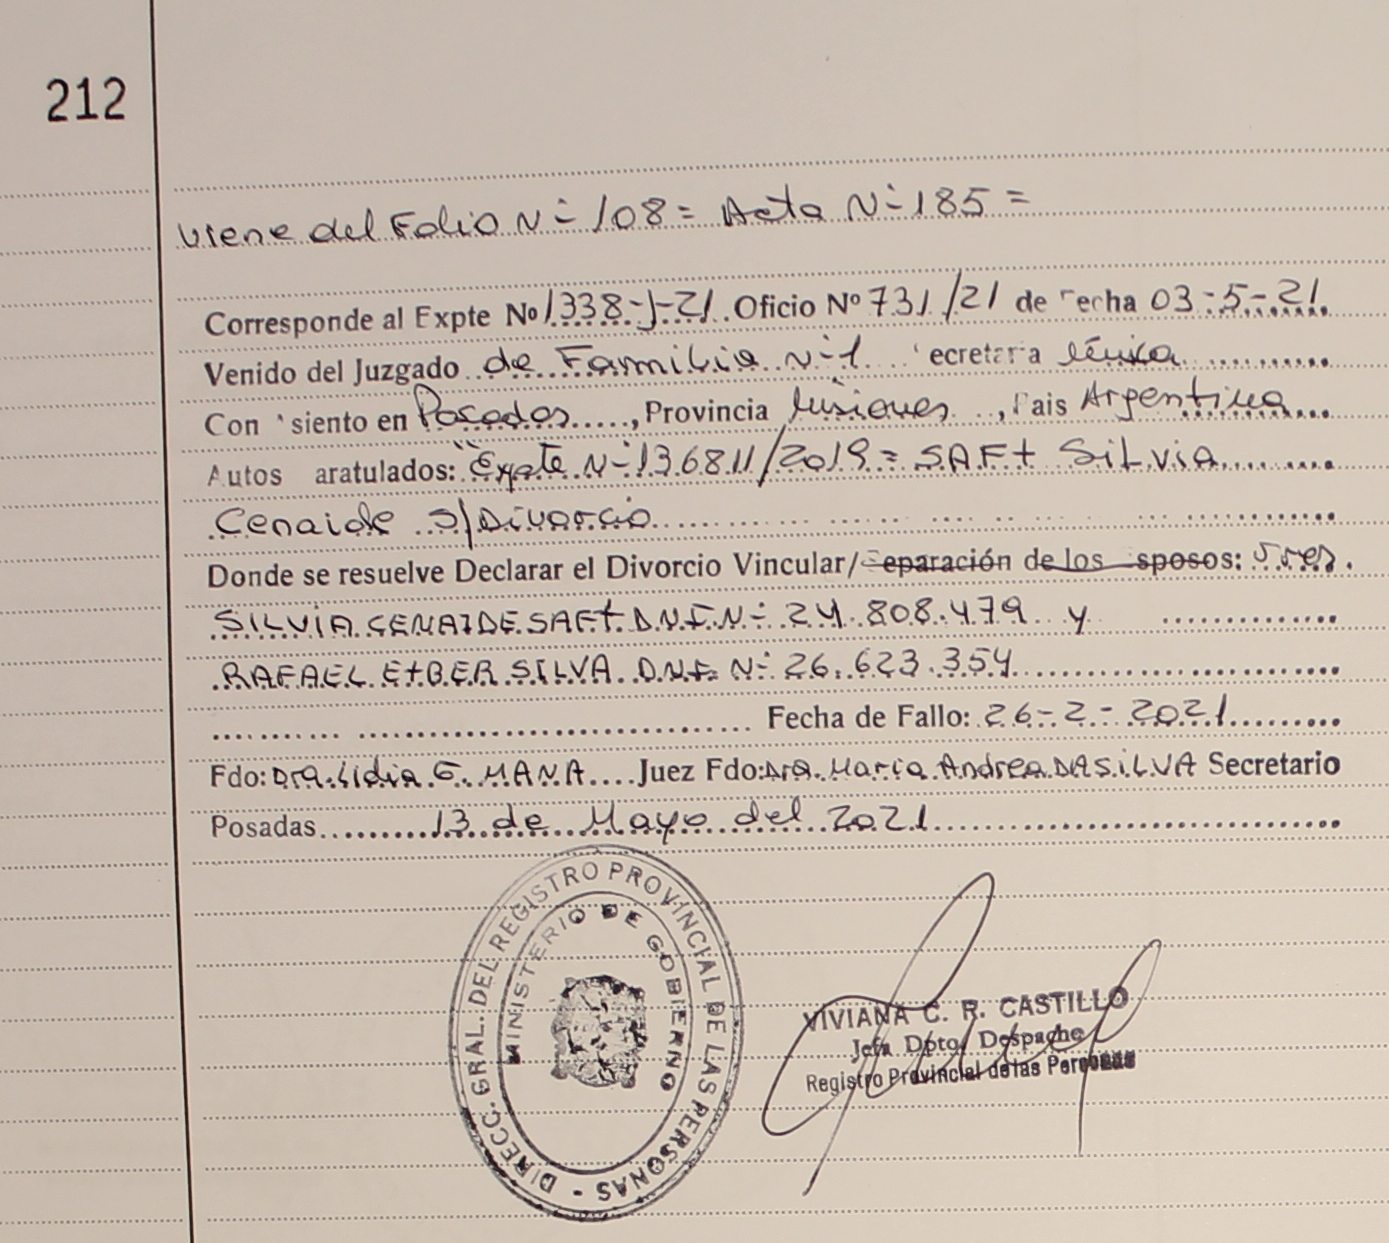 212
Viene del Folio N- 108 = Acta N- 185 =
Corresponde al Expte Nº 1338-J-21 Oficio Nº 731/21 de fecha 03-5-21
Venido del Juzgado de Familia N-1 ecretaria Única
Con siento en Posadas, Provincia Misiones, Pais Argentina
Autos aratulados: "Expte N- 136811/2019 = SAFt SiLvia
Cenaide S/Divorcio
Donde se resuelve Declarar el Divorcio Vincular/Separación de los sposos: Sres.
SILVIA CENAIDE SAFt D.N.I. N- 24.808.479 y
RAFAEL EtBER SILVA D.N.I. N- 26.623.354
Fecha de Fallo: 26-2-2021
Fdo: Dra. Lidia E. MANA Juez Fdo: Dra. Maria Andrea DASiLVA Secretario
Posadas 13 de Mayo del 2021
DIRECC. GRAL. DEL REGISTRO PROVINCIAL DE LAS PERSONAS -
MINISTERIO DE GOBIERNO
VIVIANA C. R. CASTILLO
Jefa Dpto. Despacho
Registro Provincial de las Personas